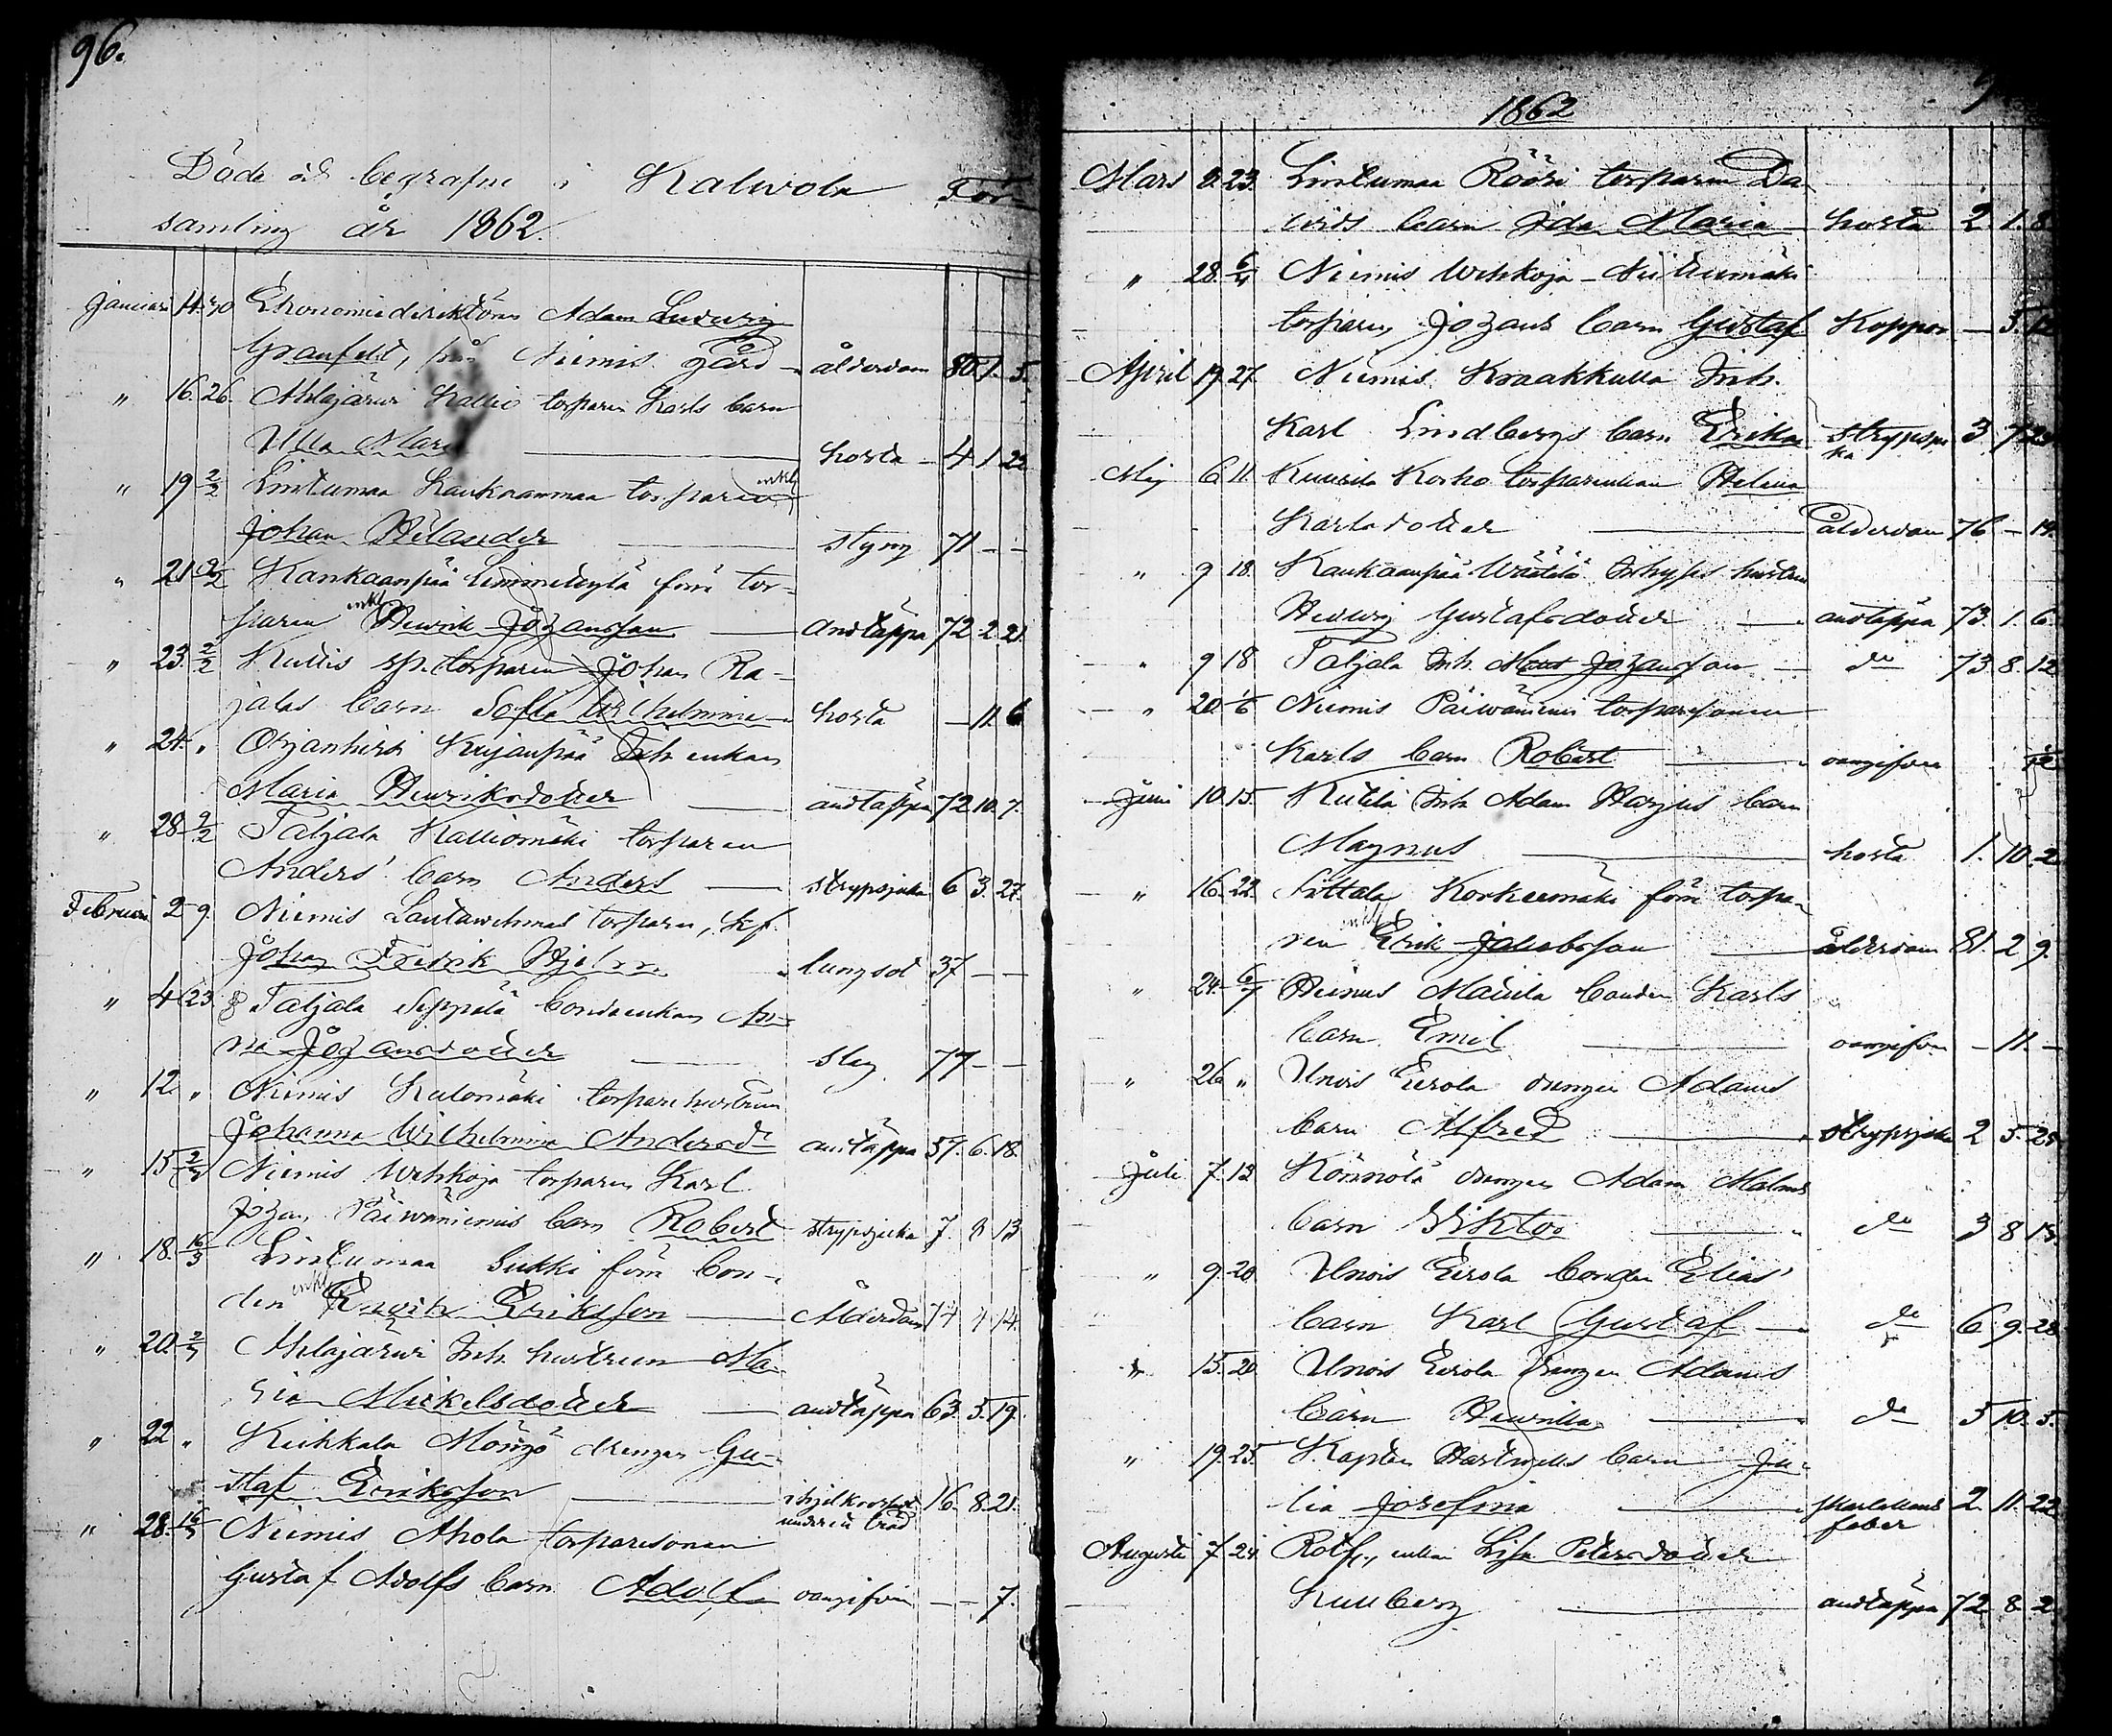 96.
Döde och begrafne i Kalwola För-
samling år 1862.
Januari 14. Ekonomiedirektören Adam Ludvig
Granfelt, från Niemis gård ålderdom 80. 1. 5.
" 16. 26. Ahlajärvi Kallio torparen Karls barn
Ulla Maria hosta 4 1 22
" 19 2/2 Lintumaa Kaukoanmaa torparen enkl.
Johan Helander styng 71 - -
" 21 2/2 Kankaanpää Limmeltylä förre tor-
paren enkl. Henrik Johansson andtäppa 72. 2. 21.
" 23. 2/2 sp. torparen Johan Ra-
jalas barn Sofia Wilhelmina hosta - 11. 6
" 24. " Orjanhirsi Kujanpää Inh. enkan
Maria Henriksdotter andtäppa 72 10. 7.
" 28. 2/2 Taljala Kalliomäki torparen
Anders' barn Anders strypsjuka 6 3. 27.
Februari 2 9. Niemis Lautawehmas torparen, Skf.
Johan Fredrik Hjelm lungsot 37 - -
" 4 23 Taljala Seppälä bondeenkan An-
na Johansdotter slag 77 - -
" 12. " Niemis Kulomäki torparehustrun
Johanna Wilhelmina Andersd:r andtäppa 37. 6. 18.
" 15 2/3 Niemis Wehkoja torparen Karl
Johan Päiwäniemis barn Robert strypsjuka 7. 8 13
" 18. 16/3 Lintumaa Sukki förre bon-
den enkl. Eriksson Ålderdom 74 4 14.
" 20. 2/3 Ahlajärvi Inh. hustrun Ma-
ria Mickelsdotter andtäppa 63. 5. 19.
" 22 " Keikkala Möngö drengen Gu-
staf Eriksson ihjelkrossad 16. 8. 21.
under ett träd
" 28. 16/3 Niemis Ahola torparesonen
Gustaf Adolfs barn Adolf oangifven - - 7.
1862
Mars 8. 23. Lintumaa Rööri torparen Da-
vids barn Ida Maria hosta 2. 1. 8
" 28. 6/4 Niemis Wehkoja - Niittumäki
torparen Johans barn Gustaf Koppor - 5. 12
April 19. 27. Niemis Kraakkulla Inh.
Karl Lindbergs barn Erika strypsju 3. 7. 23
ka
Maj 6 11. Kuurila Korko torpareenkan Helena
Karlsdotter ålderdom 76 - 14.
" 9 18. Kankaanpää Wäätälä Inhyses hustrun
Hedvig Gustafsdotter andtäppa 73. 1. 6.
" 9 18 Taljala Inh. Johansson do 73. 8. 12
" 20. 1/6 Niemis Päiwäniemi torparesonen
Karls barn Robert oangifven
Juni 10. 15. Kutila Inh. Adam Harjus barn
Magnus hosta 1. 10. 2
" 16. 22. Sittala Korkeemäki förre torpa-
ren enkl. Erik Jakobsson ålderdom 81. 2 9.
" 24. 6/7 Heinus Mattila bonden Karls
barn Emil oangifven - 11. -
" 26 " Unois Eerola drengen Adams
barn Alfred strypsjuka 2 5. 25
Juli 7. 13 Könnölä drengen Adam Malms
barn Viktor do 3 8 15.
" 9. 20 Unois Eerola bonden Elias'
barn Karl Gustaf do 6. 9. 28
" 15. 20. Unois Eerola drengen Adams
barn Henrika do 5 10. 5.
" 19. 25. Kapten Hartwalls barn Ju-
lia Josefina skarlakans 2. 11. 22
feber
Augusti 7. 24. Rotfg., enkan Lisa Petersdotter
Kullberg andtäppa 72. 8. 2